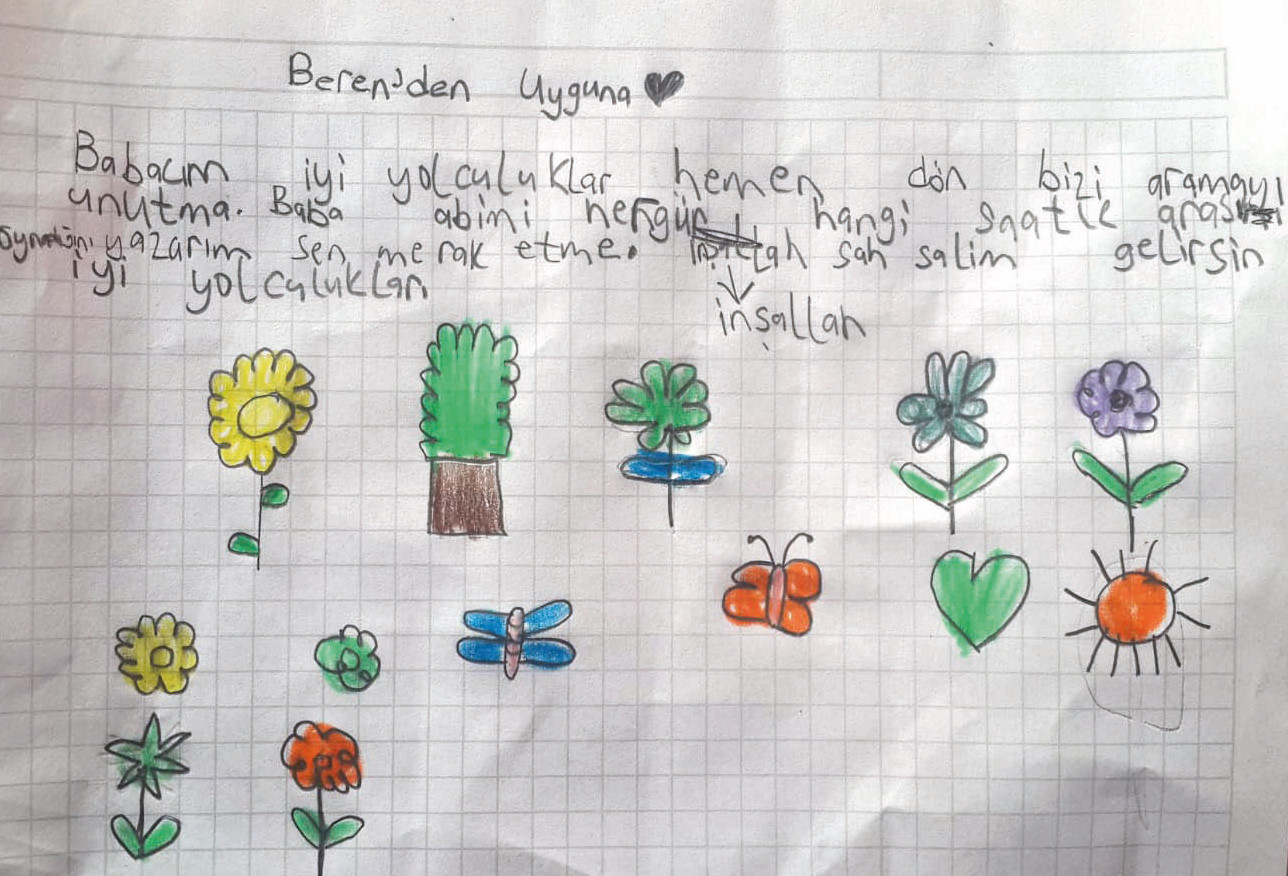 Beren'den Uyguna
Babacım iyi yolculuklar hemen dön bizi aramayı
unutma. Baba abimi hergün hangi saatle aras
oynadığını yazarım sen merak etme. sah salim gelirsin
iyi yolculuklar
inşallah